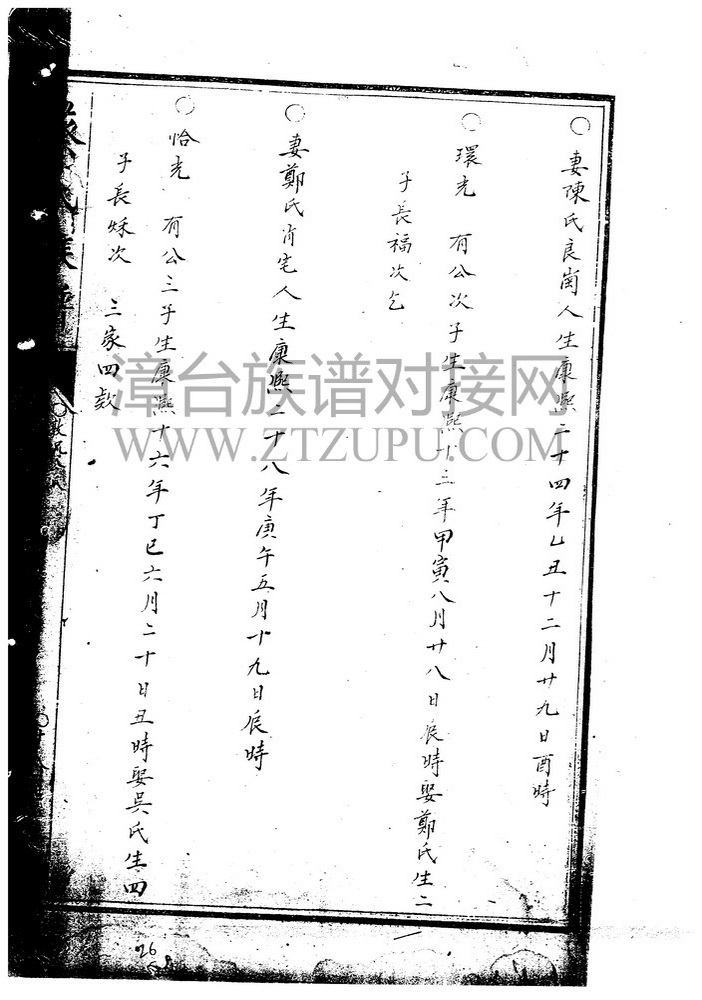 ○妻陳氏良崗人生康熙二十四年乙丑十二月廿九日酉時
○環光 有公次子生康熙十三年甲寅八月廿八日辰時娶鄭氏生二
子長福次乞
○妻鄭氏肖宅人生康熙二十八年庚午五月十九日辰時
○恰光 有公三子生康熙十六年丁巳六月二十日丑時娶吳氏生四
子長妹次 三家四款
漳台族谱对接网
WWW.ZTZUPU.COM
26